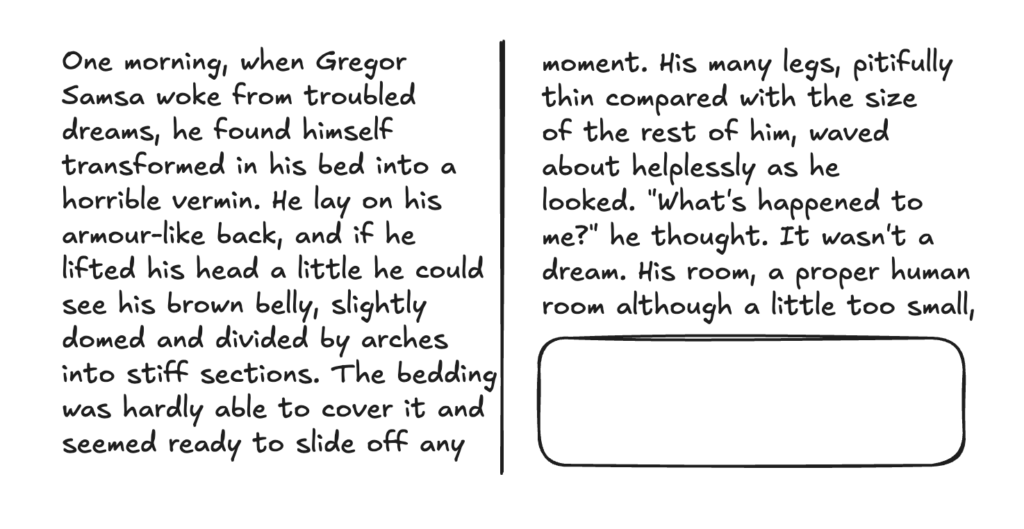 One morning, when Gregor
Samsa woke from troubled
dreams, he found himself
transformed in his bed into a
horrible vermin. He lay on his
armour-like back, and if he
lifted his head a little he could
see his brown belly, slightly
domed and divided by arches
into stiff sections. The bedding
was hardly able to cover it and
seemed ready to slide off any
moment. His many legs, pitifully
thin compared with the size
of the rest of him, waved
about helplessly as he
looked. "What's happened to
me?" he thought. It wasn't a
dream. His room, a proper human
room although a little too small,